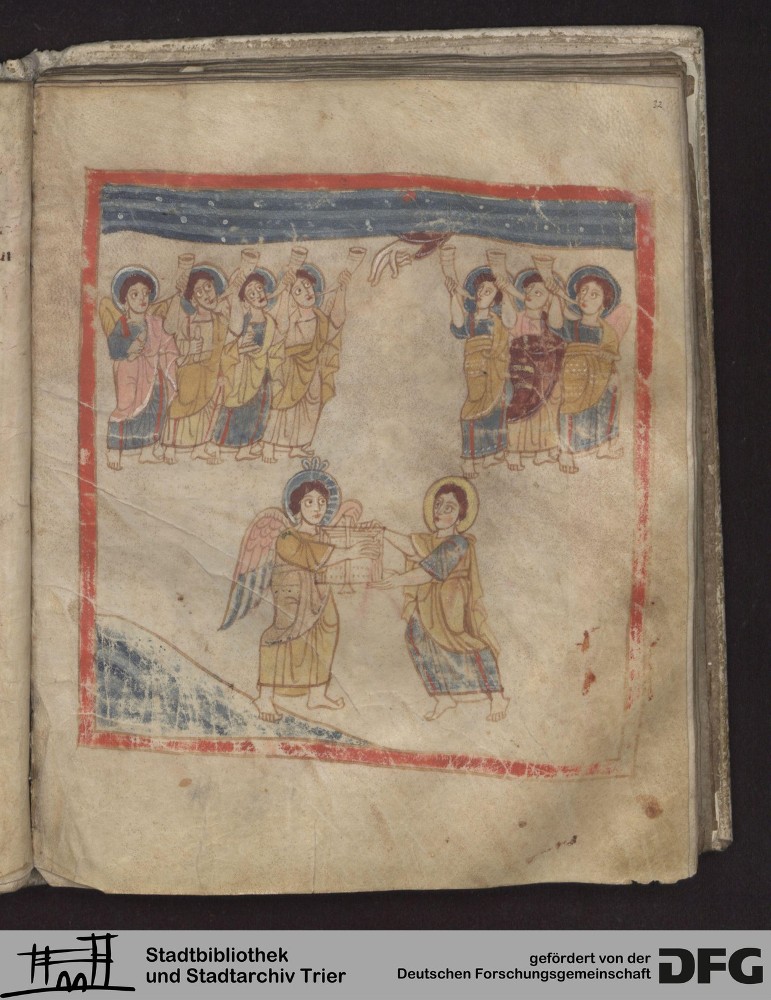 32
Stadtbibliothek
und Stadtarchiv Trier
gefördert von der
Deutschen Forschungsgemeinschaft
DFG